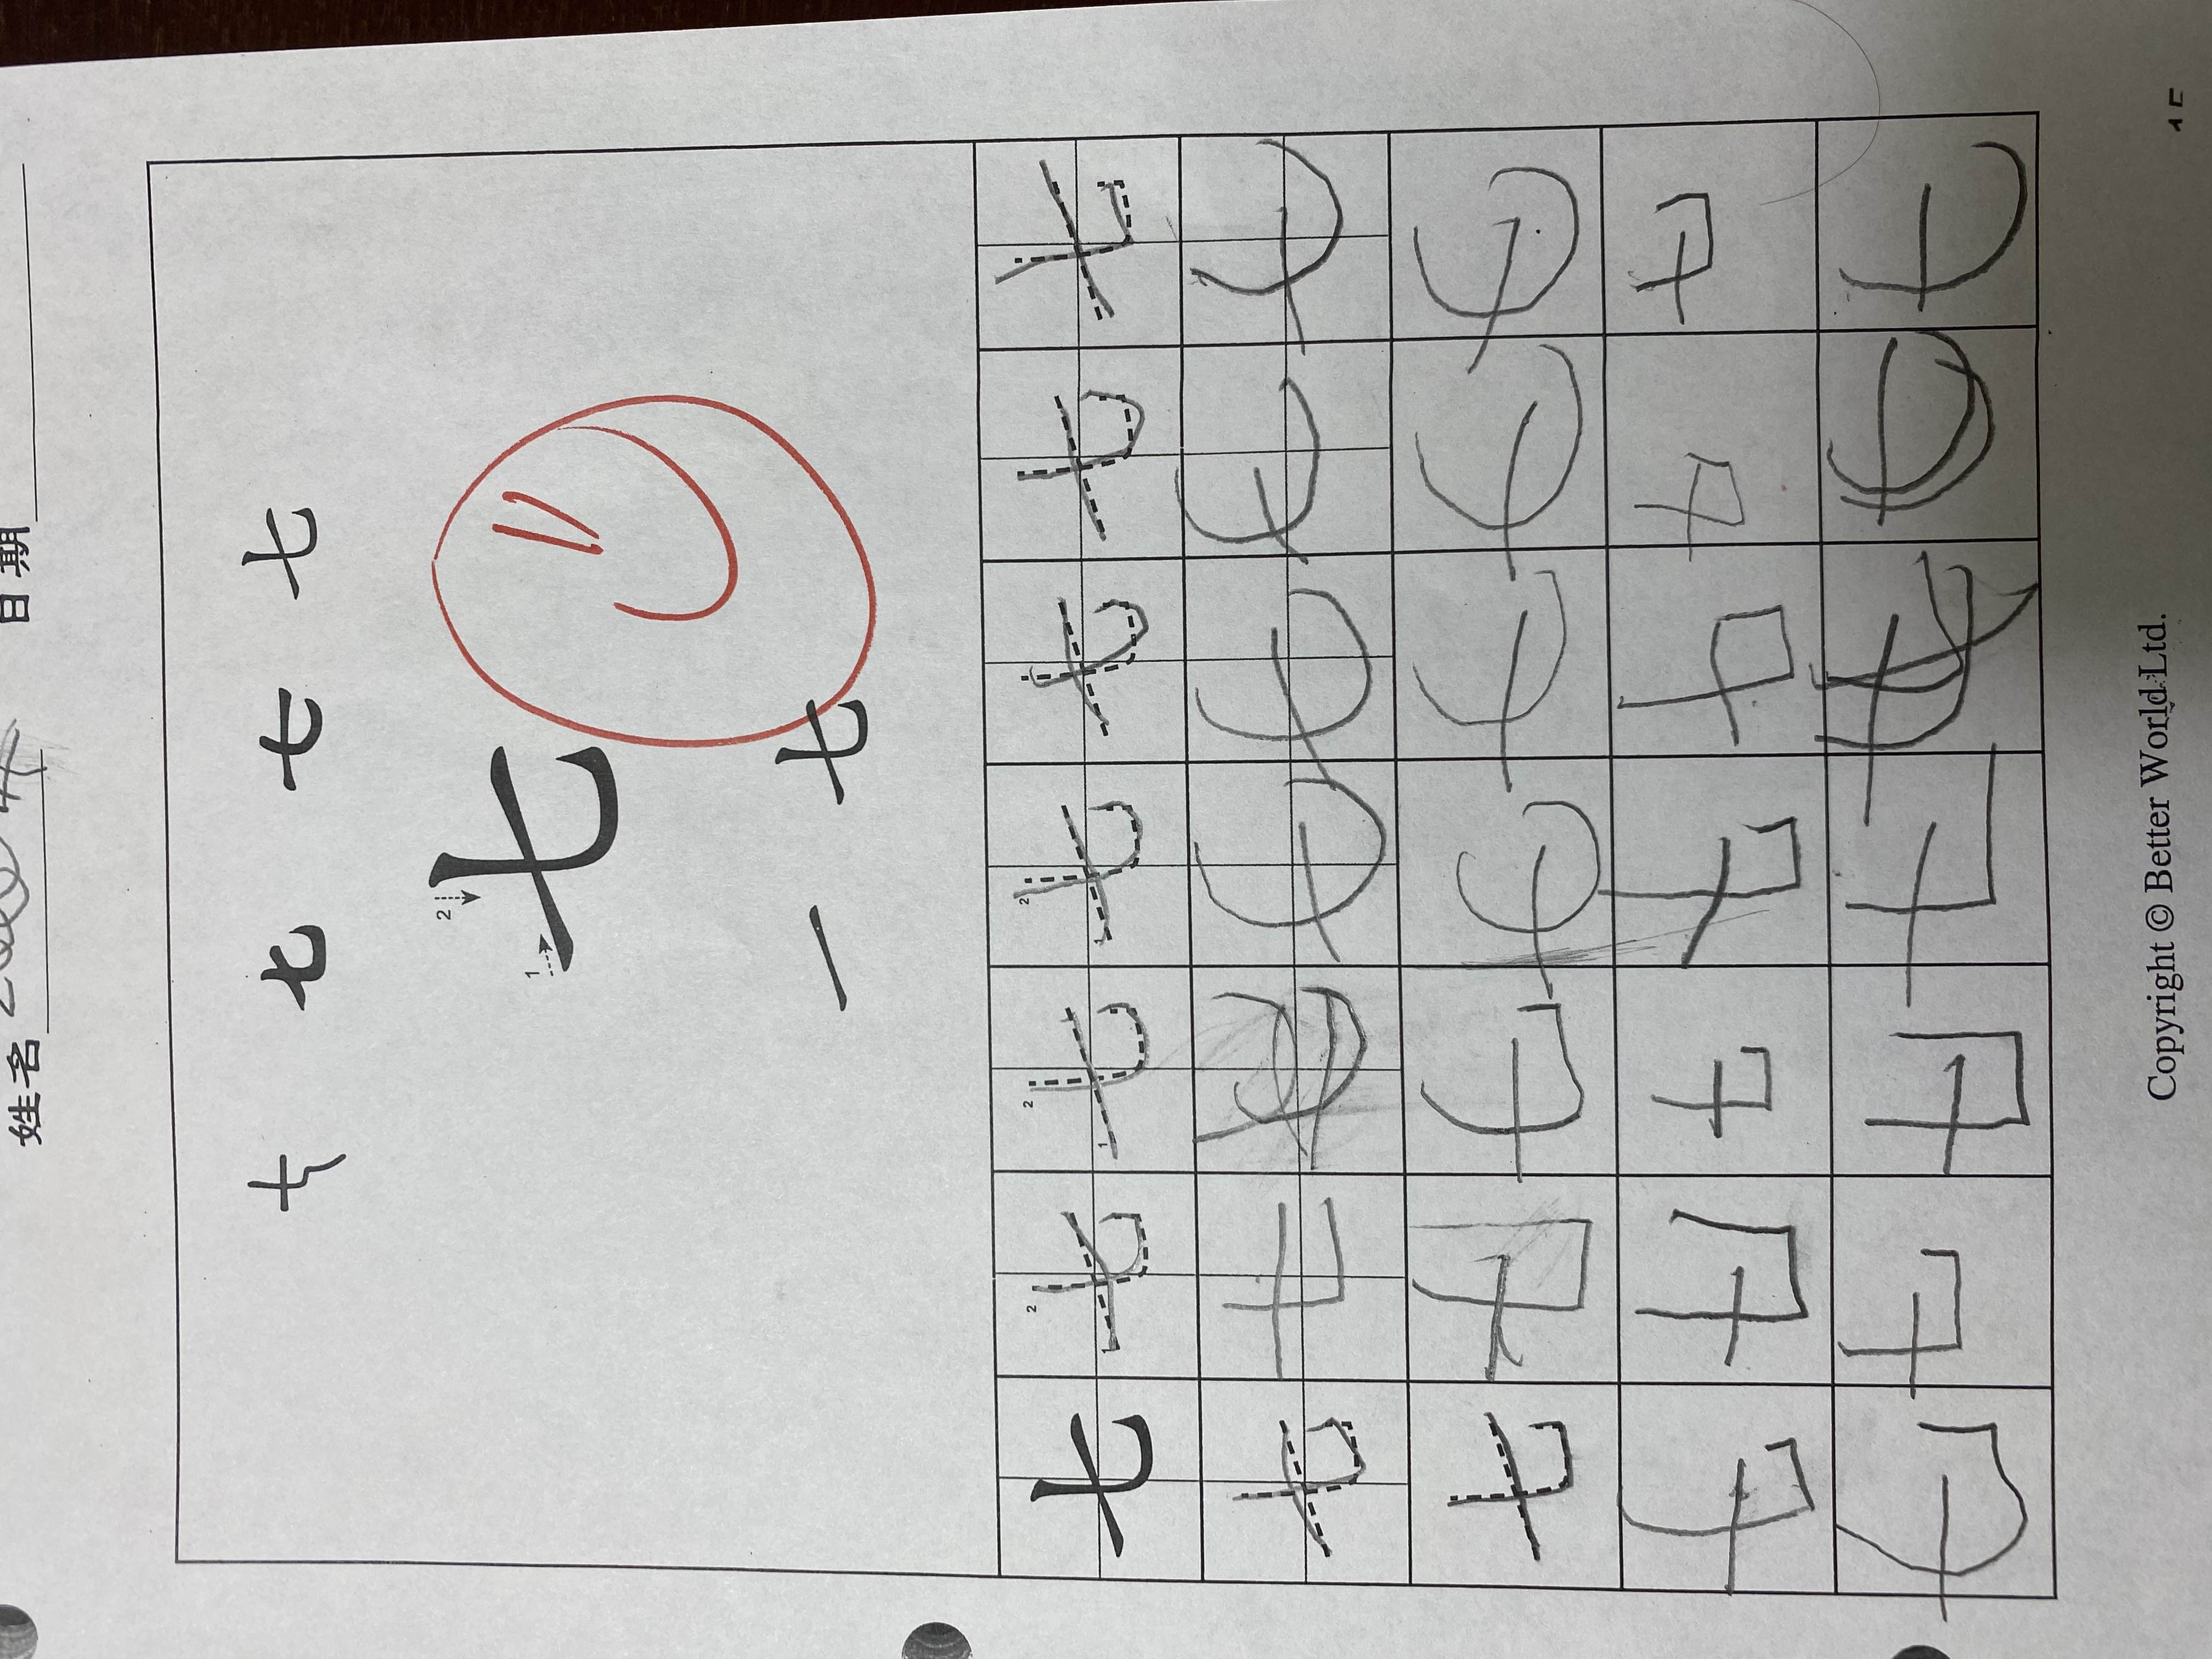 姓名 日期
七 七 七 七
2
1 七
一 七
七 2 1 七 2 1 七 2 1 七 七 七 七
七 七 七 七 七 七
七 七 七 七 七 七 七
七 七 七 七 七 七 七
七 七 七 七 七
Copyright © Better World Ltd.